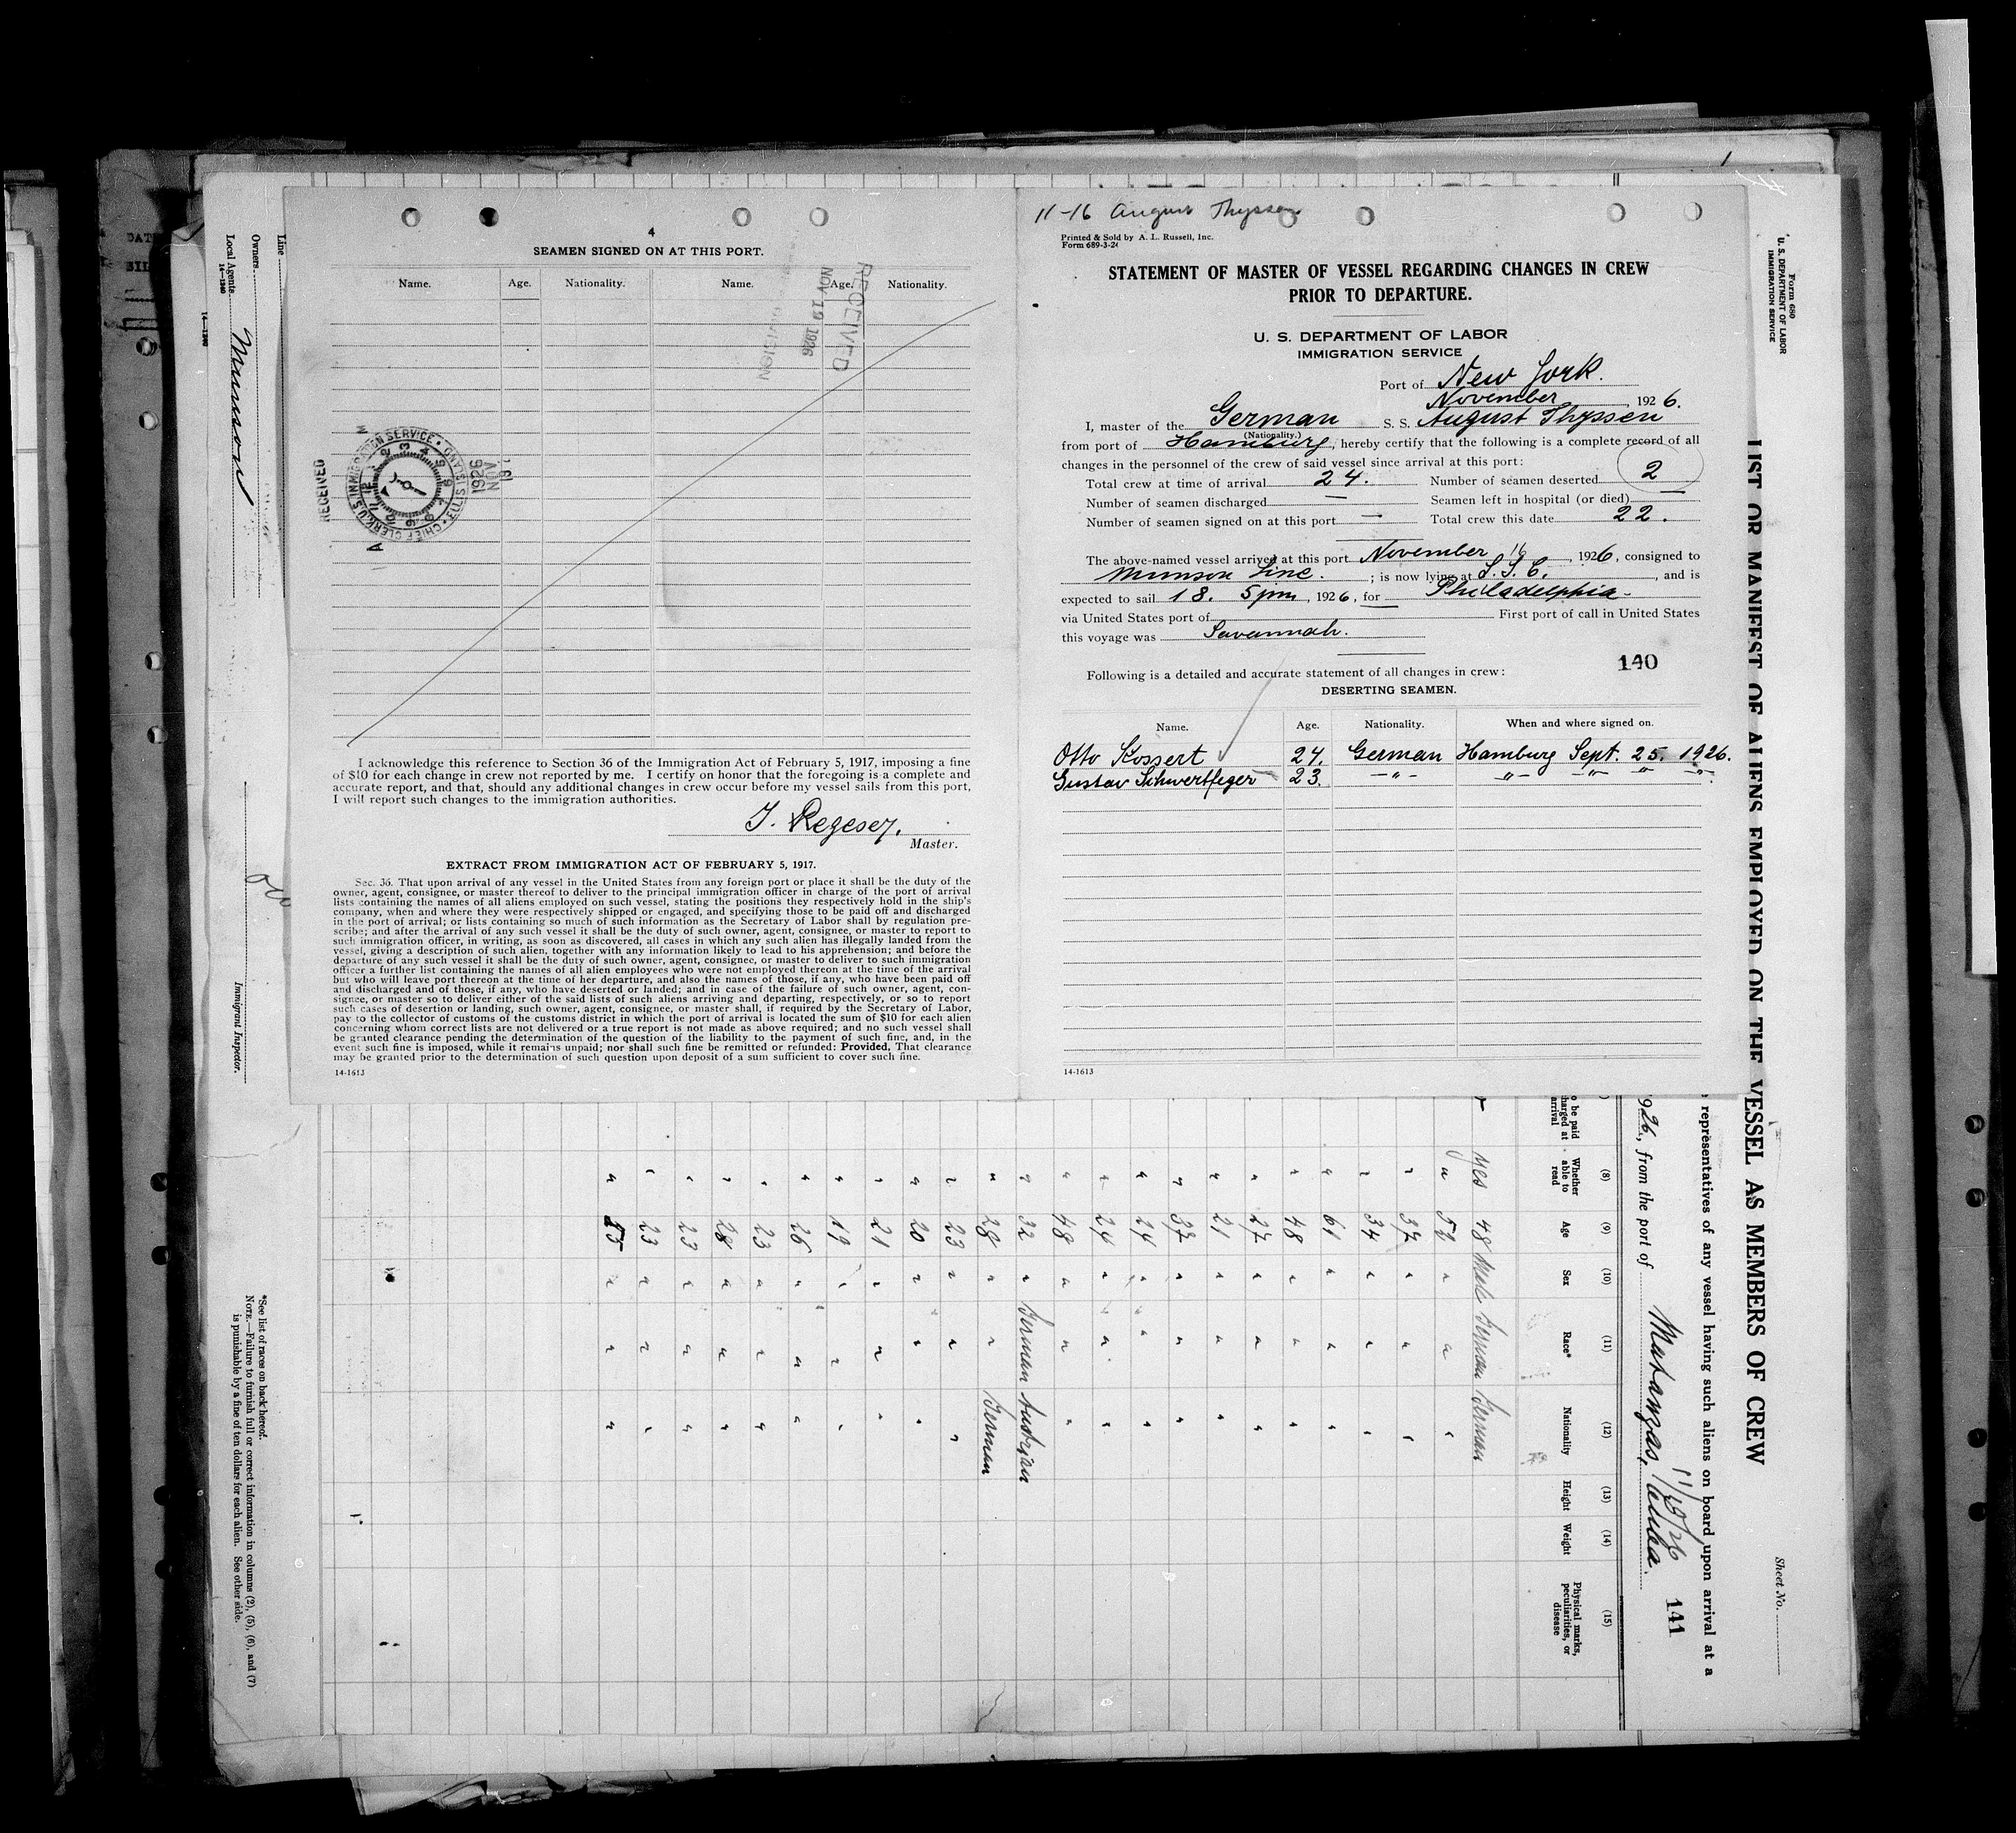 11-16 August Thyssen
4
SEAMEN SIGNED ON AT THIS PORT.
Name. Age. Nationality. Name. Age. Nationality.
RECEIVED
NOV 19 1926
DIVISION
RECEIVED
U.S. IMMIGRATION SERVICE • ELLIS ISLAND • CHIEF CLERK
1926 NOV 19
I acknowledge this reference to Section 36 of the Immigration Act of February 5, 1917, imposing a fine
of $10 for each change in crew not reported by me. I certify on honor that the foregoing is a complete and
accurate report, and that, should any additional changes in crew occur before my vessel sails from this port,
I will report such changes to the immigration authorities.
Master.
EXTRACT FROM IMMIGRATION ACT OF FEBRUARY 5, 1917.
Sec. 36. That upon arrival of any vessel in the United States from any foreign port or place it shall be the duty of the
owner, agent, consignee, or master thereof to deliver to the principal immigration officer in charge of the port of arrival
lists containing the names of all aliens employed on such vessel, stating the positions they respectively hold in the ship's
company, when and where they were respectively shipped or engaged, and specifying those to be paid off and discharged
in the port of arrival; or lists containing so much of such information as the Secretary of Labor shall by regulation pre-
scribe; and after the arrival of any such vessel it shall be the duty of such owner, agent, consignee, or master to report to
such immigration officer, in writing, as soon as discovered, all cases in which any such alien has illegally landed from the
vessel, giving a description of such alien, together with any information likely to lead to his apprehension; and before the
departure of any such vessel it shall be the duty of such owner, agent, consignee, or master to deliver to such immigration
officer a further list containing the names of all alien employees who were not employed thereon at the time of the arrival
but who will leave port thereon at the time of her departure, and also the names of those, if any, who have been paid off
and discharged and of those, if any, who have deserted or landed; and in case of the failure of such owner, agent, con-
signee, or master so to deliver either of the said lists of such aliens arriving and departing, respectively, or so to report
such cases of desertion or landing, such owner, agent, consignee, or master shall, if required by the Secretary of Labor,
pay to the collector of customs of the customs district in which the port of arrival is located the sum of $10 for each alien
concerning whom correct lists are not delivered or a true report is not made as above required; and no such vessel shall
be granted clearance pending the determination of the question of the liability to the payment of such fine, and, in the
event such fine is imposed, while it remains unpaid; nor shall such fine be remitted or refunded: Provided, That clearance
may be granted prior to the determination of such question upon deposit of a sum sufficient to cover such fine.
14-1613
Printed & Sold by A. L. Russell, Inc.
Form 689-3-24
STATEMENT OF MASTER OF VESSEL REGARDING CHANGES IN CREW
PRIOR TO DEPARTURE.
U. S. DEPARTMENT OF LABOR
IMMIGRATION SERVICE
Port of New York.
November, 1926.
I, master of the German S. S. August Thyssen
(Nationality.)
from port of Hamburg, hereby certify that the following is a complete record of all
changes in the personnel of the crew of said vessel since arrival at this port:
Total crew at time of arrival 24. Number of seamen deserted 2
Number of seamen discharged — Seamen left in hospital (or died) —
Number of seamen signed on at this port — Total crew this date 22.
The above-named vessel arrived at this port November 16, 1926, consigned to
Munson Line. ; is now lying at S.S.C., and is
expected to sail 18. 5pm, 1926, for Philadelphia -
via United States port of — First port of call in United States
this voyage was Savannah.
140
Following is a detailed and accurate statement of all changes in crew:
DESERTING SEAMEN.
Name. Age. Nationality. When and where signed on.
Otto Kossert 24. German Hamburg Sept. 25. 1926.
Gustav Schwertfeger 23. -"- -"- -"- " -"-.
14-1613
Form 680
U. S. DEPARTMENT OF LABOR
IMMIGRATION SERVICE
Sheet No.
LIST OR MANIFEST OF ALIENS EMPLOYED ON THE VESSEL AS MEMBERS OF CREW
representatives of any vessel having such aliens on board upon arrival at a
1926, from the port of Matanzas, Cuba.
11/15/26
141
(8) (9) (10) (11) (12) (13) (14) (15)
o be paid
harged at
arrival
Whether
able to
read
Age
Sex
Race*
Nationality
Height
Weight
Physical marks,
peculiarities, or
disease
yes 48 Male German German
" 37 " " "
" 34 " " "
" 61 " " "
" 48 " " "
" 27 " " "
" 21 " " "
" 37 " " "
" 24 " " "
" 24 " " "
" 48 " " "
" 32 " German Austrian
" 28 " " German
" 23 " " "
" 20 " " "
" 21 " " "
" 19 " " "
" 26 " " "
" 23 " " "
" 28 " " "
" 23 " " "
" 23 " " "
Line
Owners
Local Agents Munson
14-1240
Immigrant Inspector.
*See list of races on back hereof.
NOTE.—Failure to furnish full or correct information in columns (2), (5), (6), and (7)
is punishable by a fine of ten dollars for each alien. See other side.